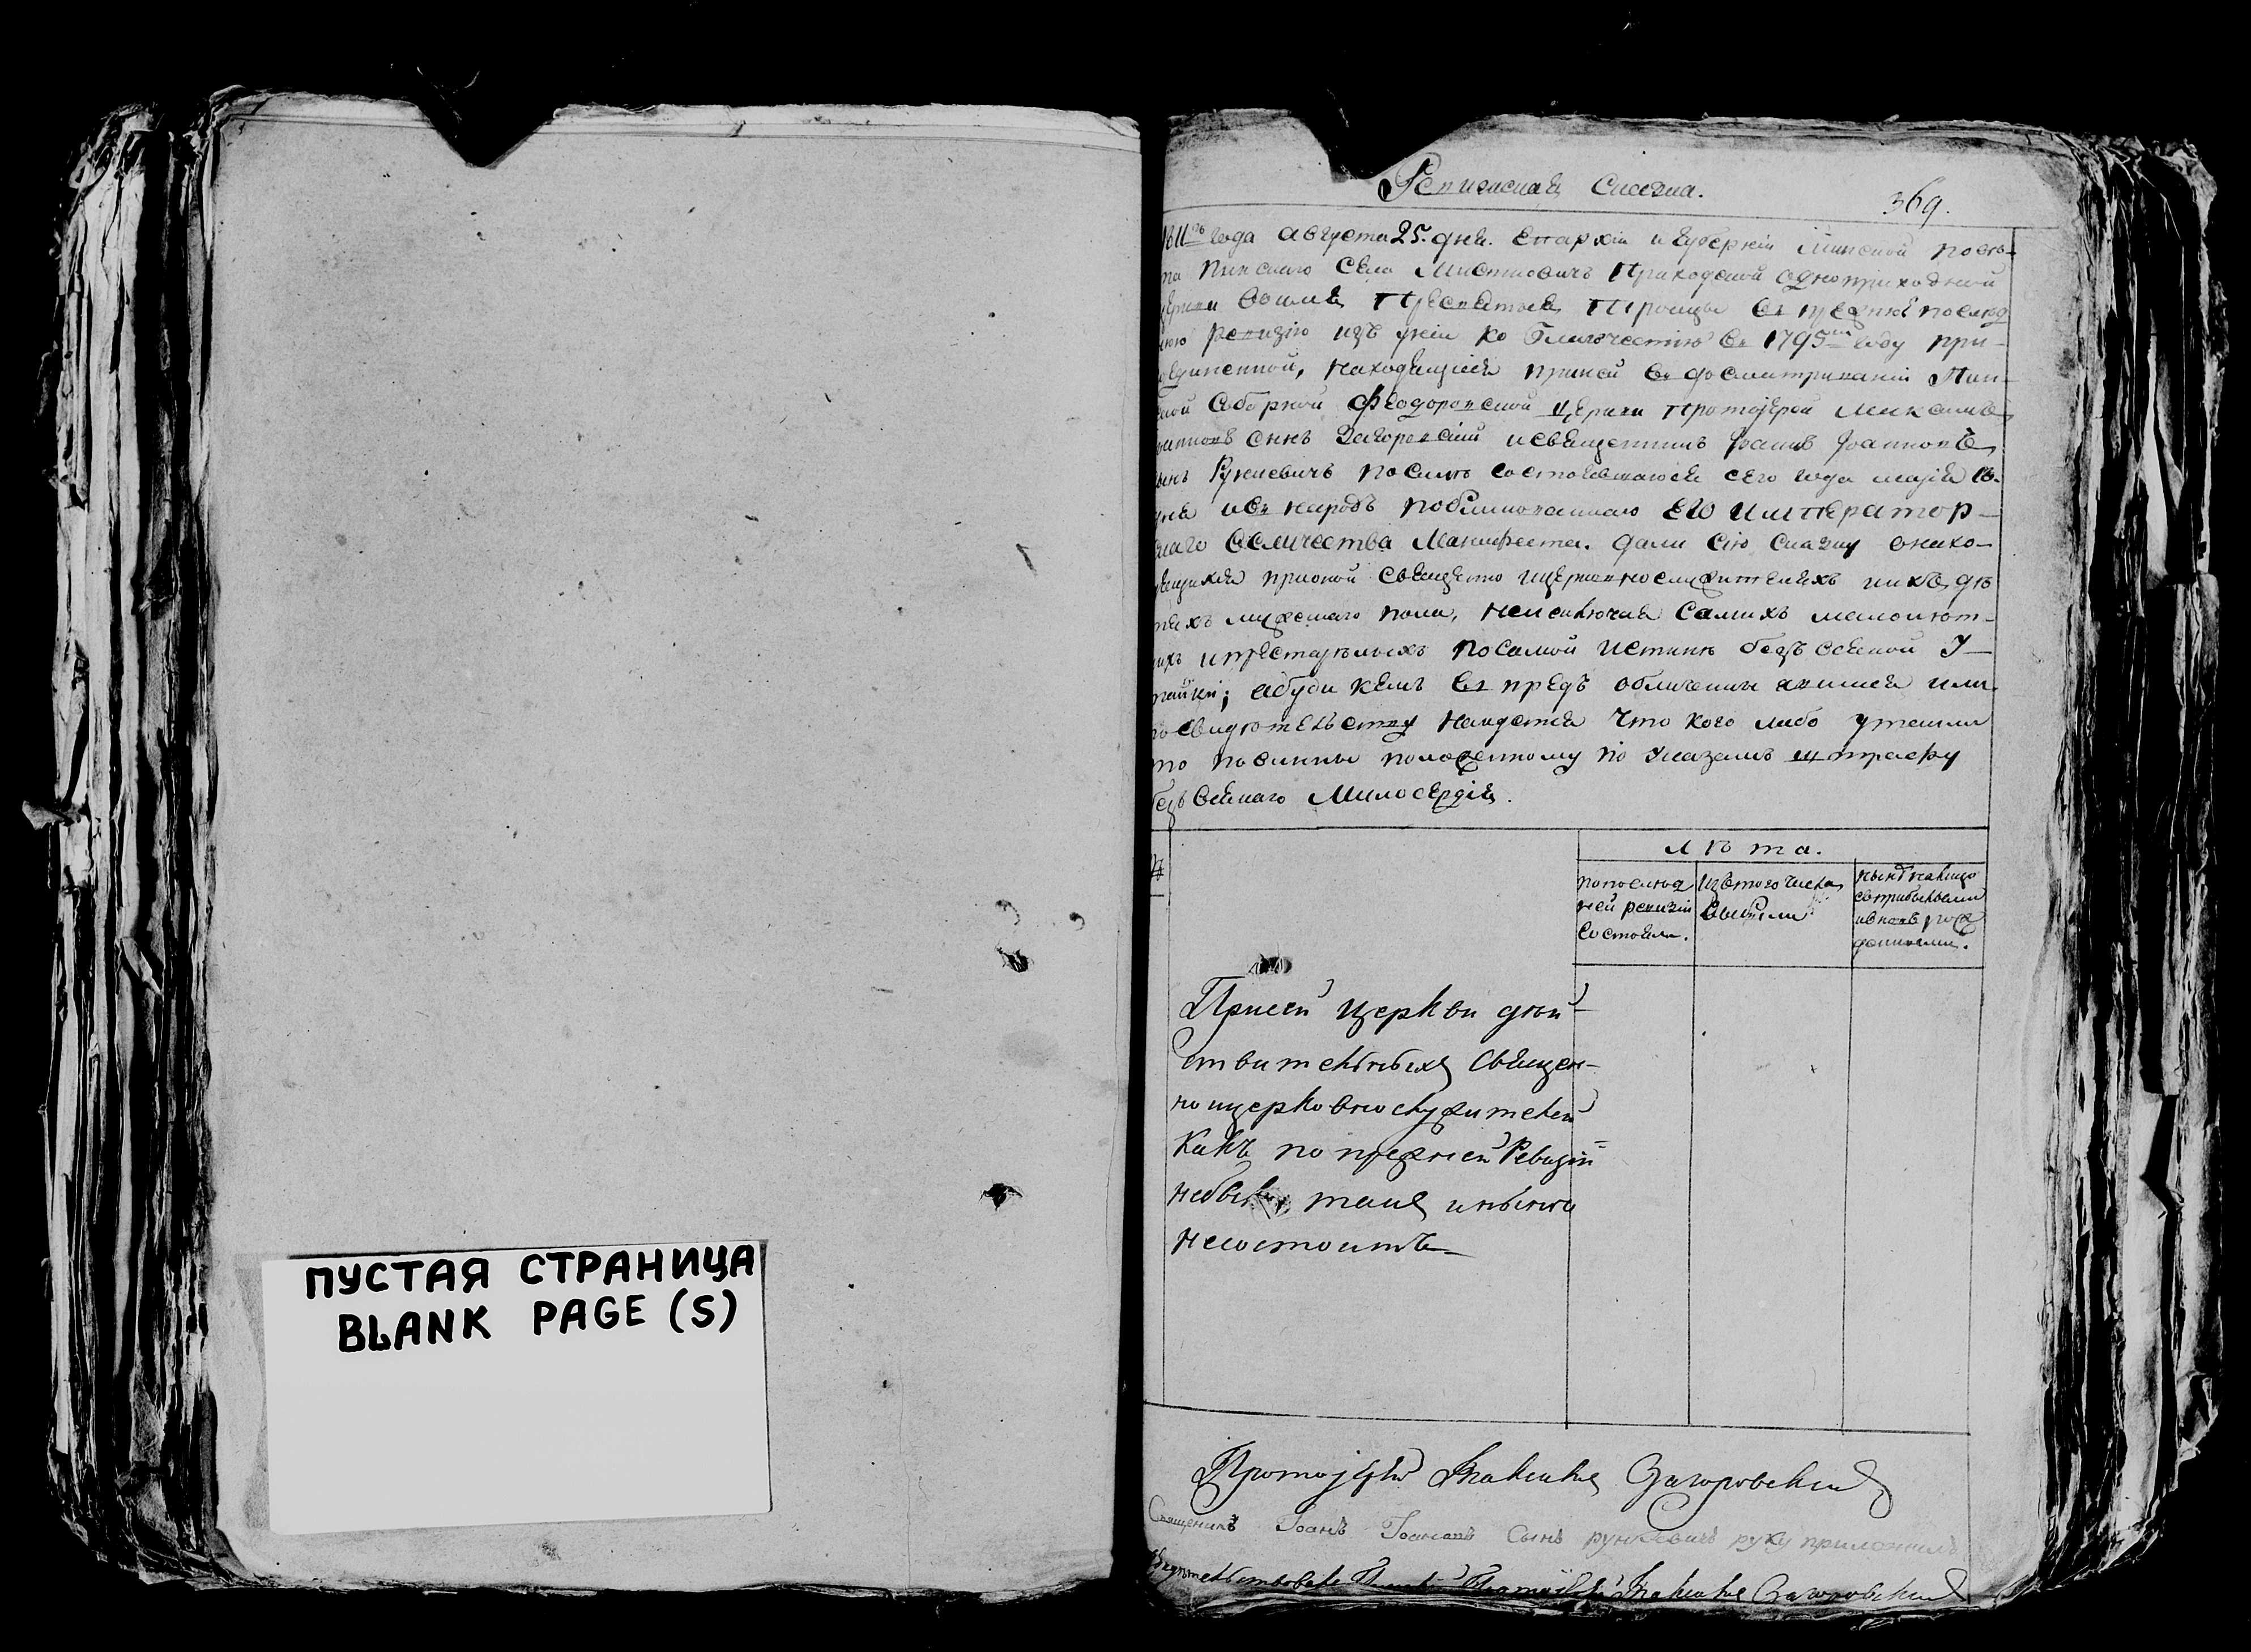 ПУСТАЯ СТРАНИЦА
BLANK PAGE (S)
Ревизская Сказка.
369.
1811го года августа 25. дня. Епархіи и Губерніи Минской повѣ-
та Пинскаго Села Мистковичъ Приходской одноприходной
церкви во имя Пресвятыя Троицы въ прежнюю послѣд
нюю ревизію изъ уніи ко благочестію въ 1795мъ году при-
соединенной, находящіеся при ней въ досматриваніи Пин-
ской Соборной Феодоровской церкви Протоіерей Максимъ
сынъ Загоровскій и священникъ Іоаннъ Іоанновъ
сынъ Рункевичъ по силѣ состоявшагося сего года маія 18.
дня и въ народъ публикованнаго ЕГО ИМПЕРАТОР-
скаго Величества Манифеста. дали сію сказку о нахо-
дящихся при оной священно и церковнослужителяхъ и ихъ дѣ
тяхъ мужескаго пола, не исключая самихъ малолѣт-
нихъ и престарѣлыхъ по самой истинѣ безъ всякой у-
тайки; а буди кемъ въ предъ обличены явимся или
по свидѣтельству найдется что кого либо утаили
то повинны положенному по указамъ штрафу
безъ всякаго Милосердія.
№
лѣта.
по послѣд
ней ревизіи
состояли.
изъ того числа
выбыли
нынѣ на лицо
съ прибылыми
и вновь рож
денными.
При сей церкви дѣй-
ствительныхъ священ-
но и церковнослужителей
какъ по прежней Ревизіи
не было такъ и нынѣ
не состоитъ
Протоіерей Максимъ Загоровскій
Священникъ Іоанъ Іоановъ Сынъ рункевичъ руку приложилъ
Свидѣтельствовалъ Протоіерей Максимъ Загоровскій